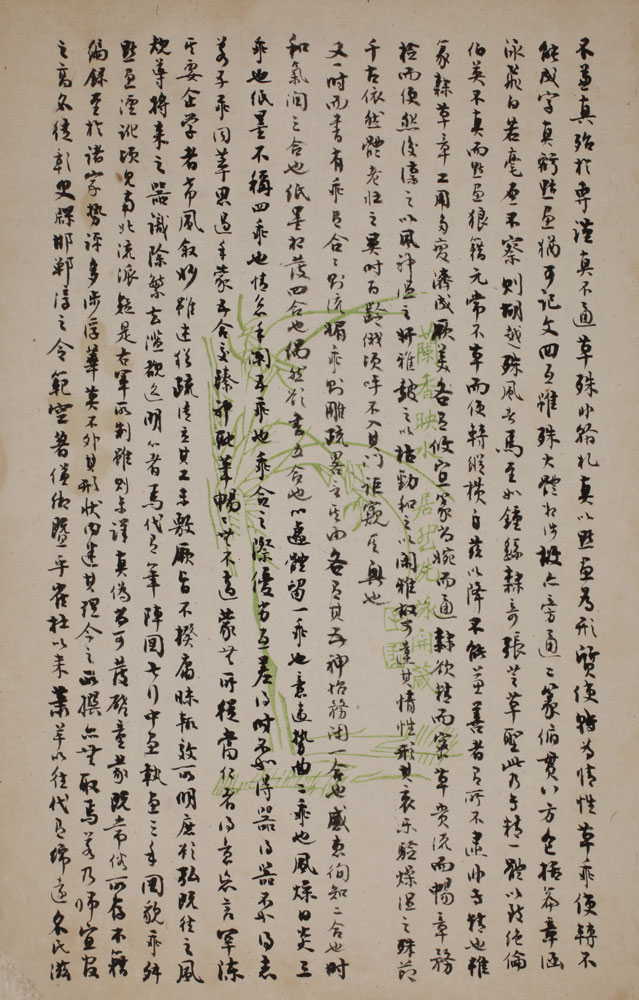 不兼真殆於專謹真不通草殊非翰札真以點畫為形質使轉為情性草乖使轉不
能成字真虧點畫猶可記文回互雖殊大體相涉故亦旁通二篆俯貫八分包括篇章涵
泳飛白若毫釐不察則胡越殊風者焉至如鍾繇隸奇張芝草聖此乃專精一體以致絕倫
伯英不真而點畫狼藉元常不草而使轉縱橫自茲以降不能兼善者有所不逮非專精也雖
篆隸草章工用多變濟成厥美各有攸宜篆尚婉而通隸欲精而密草貴流而暢章務
檢而便然後凜之以風神溫之以妍雅鼓之以枯勁和之以閒雅故可達其情性形其哀樂驗燥濕之殊節
千古依然體老壯之異時百齡俄頃呼不入其門詎窺其奧也
又一時而書有乖有合合則流媚乖則雕疏略言其由各有其五神怡務閒一合也感惠徇知二合也時
和氣潤三合也紙墨相發四合也偶然欲書五合也心遽體留一乖也意違勢曲二乖也風燥日炎三
乖也紙墨不稱四乖也情怠手闌五乖也乖合之際優劣互差得時不如得器得器不如得志
若五乖同萃思遏手蒙五合交臻神融筆暢暢無不適蒙無所從當仁者得意忘言罕陳
其要企學者希風敘妙雖述猶疏徒立其工未敷厥旨不揆庸昧輒效所明庶欲弘既往之風
規導將來之器識除繁去濫睹迹明心者焉代有筆陣圖七行中畫執筆三手圖貌乖舛
點畫湮訛頃見南北流派疑是右軍所制雖則未詳真偽尚可發啓童蒙既常俗所存不藉
編錄至於諸家勢評多涉浮華莫不外其形狀內迷其理今之所撰亦無取焉若乃師宜官
之高名徒彰史牒邯鄲淳之令範空著縑緗暨乎崔杜以來蕭羊以往代有綿遠名氏滋